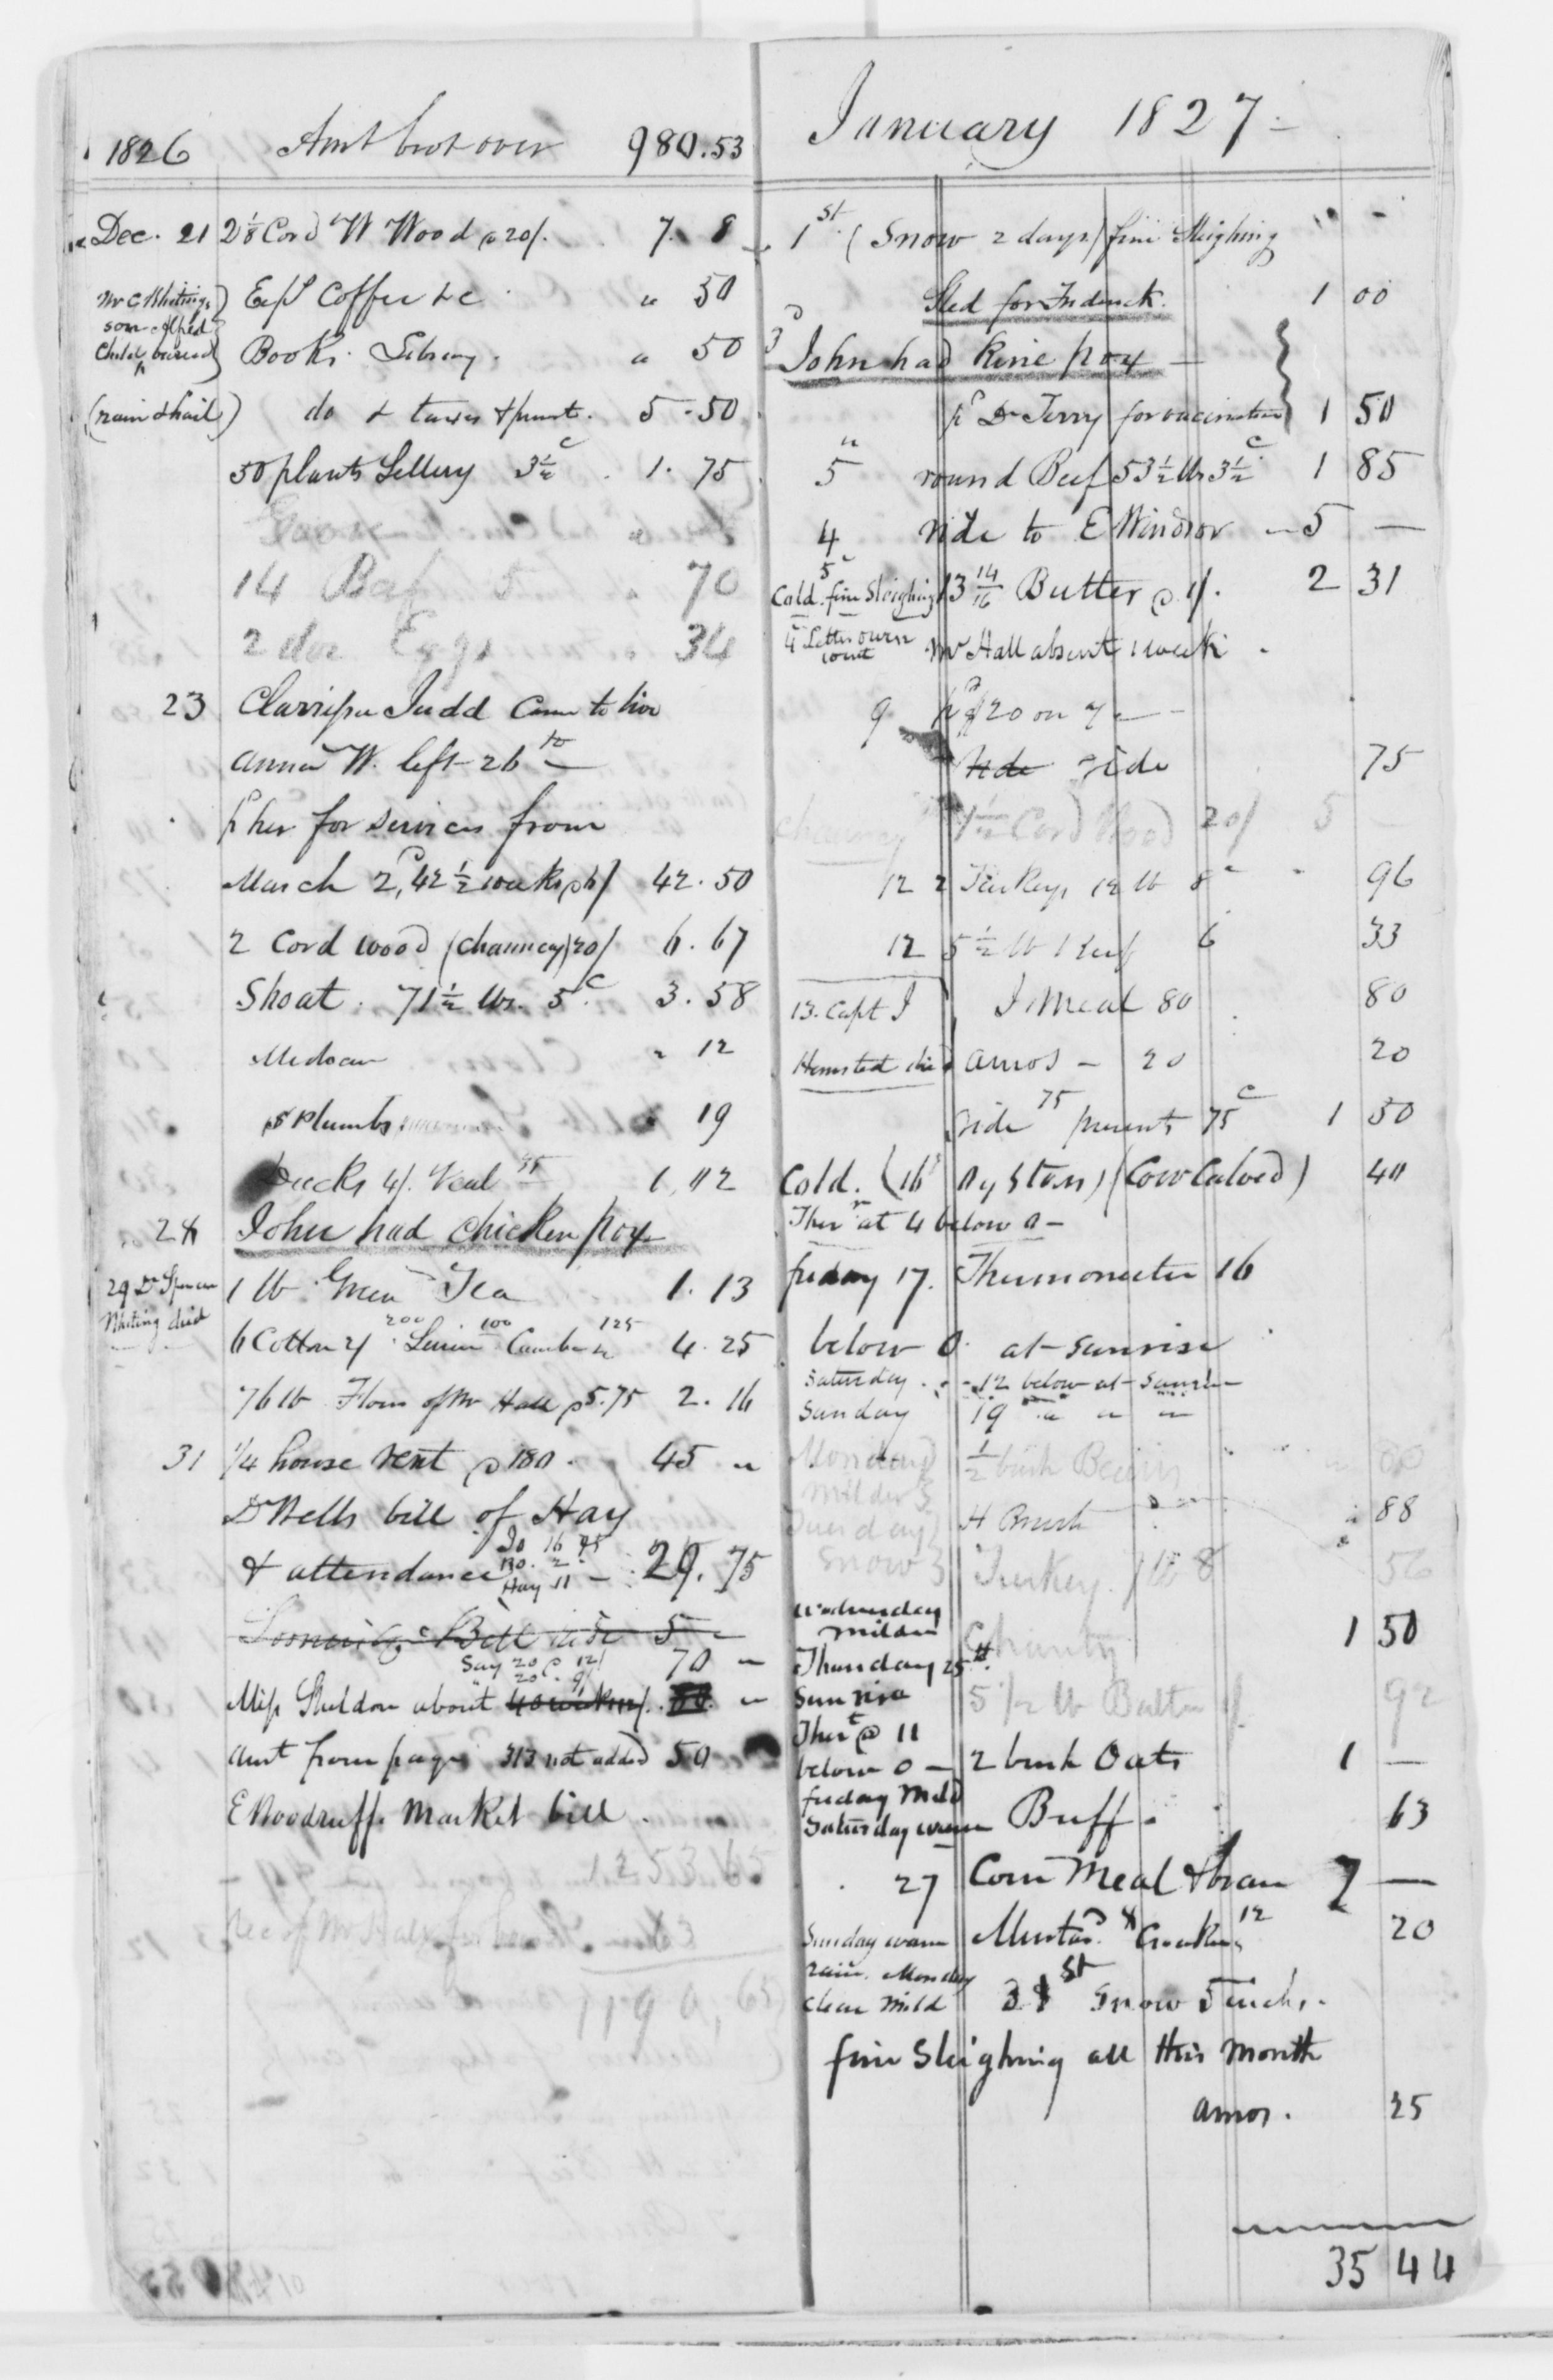 1826 Amt brot over 980.53
Dec. 21 2 1/8 Cord W Wood @ 20/. 7. 8
Exps Coffee &c " 50
son Alfred
Child buried
Books. Library. " 50
(rain & hail) do & taxes & 5.50
50 plants Sellery 3 1/2 c 1.75
Goose
14 5 " 70
2 doz Eggs 34
23 Clarissa Judd Came to live
Anna W. left 26th
pd her for services from
March 2d, 42 1/2 weeks @ 6/ 42.50
2 Cord wood (Chauncey) 20/ 6.67
Shoat. 71 1/2 lbs. 5 c 3.58
" 12
Plumbs 19
Ducks 4/. Veal 1.02
28 John had chicken pox
29 Dr Spencer
Whiting died
1 lb Green Tea 1.13
6 Cotton 2/ 200 Linen 100 125 4.25
76 lb Flour of Mr Hall @ 5.75 2.16
31 1/4 house rent @ 180. 45 "
Dr Wells bill of Hay
& attendance Hay 11 29.75
Bill 5 "
Say 20 @ 12/ 70 "
20 @ 9/
Miss Sheldon about 40 weeks "
Amt from page 313 not added 50
E Woodruffs Market bill
1253.65
1190.65
January 1827
1st (Snow 2 days) fine Sleighing
Sled for Frederick. 1 00
3d John had Kine pox
pd Dr Terry for vaccination 1 50
5 " round Beef 53 1/2 lbs 3 1/2 c 1 85
4 ride to E Windsor 5 —
5
Cold. fine Sleighing 13 14/16 Butter @ 1/. 2 31
4 Letters
Mr Hall absent 1 week
9 pd $20 on
ride ride 75
Chauncey 1 1/2 Cord Wood 20/ 5
12 2 Turkeys 12 lb 8 c 96
12 5 1/2 lb Beef 6 33
13. Capt J I Meal 80 80
Hemsted died Amos — 20 20
ride 75 presents 75 c 1 50
Cold. (16 Oysters) (Cow Calved) 40
Ther at 4 below 0 —
friday 17. Thermometer 16
below 0 at sunrise
Saturday 12 below at Sunrise
Sunday 19 " " "
Monday 1/2 bush Beans
milder
Tuesday H Brush " 88
snow Turkey. 7 lb 8 56
Wednesday
milder Charity 1 50
Thursday 25th.
Sunrise 5 1/2 lb Butter 1/ 92
Ther @ 11
below 0 — 2 bush Oats 1 —
friday Mild
Saturday warm Buff. 63
27 Corn Meal & bran 7 —
Sunday warm Mustard. 8 Crackers 12 20
rain. Monday
clear mild 31st Snow 5 inchs.
fine Sleighing all this month
Amos. 25
35 44